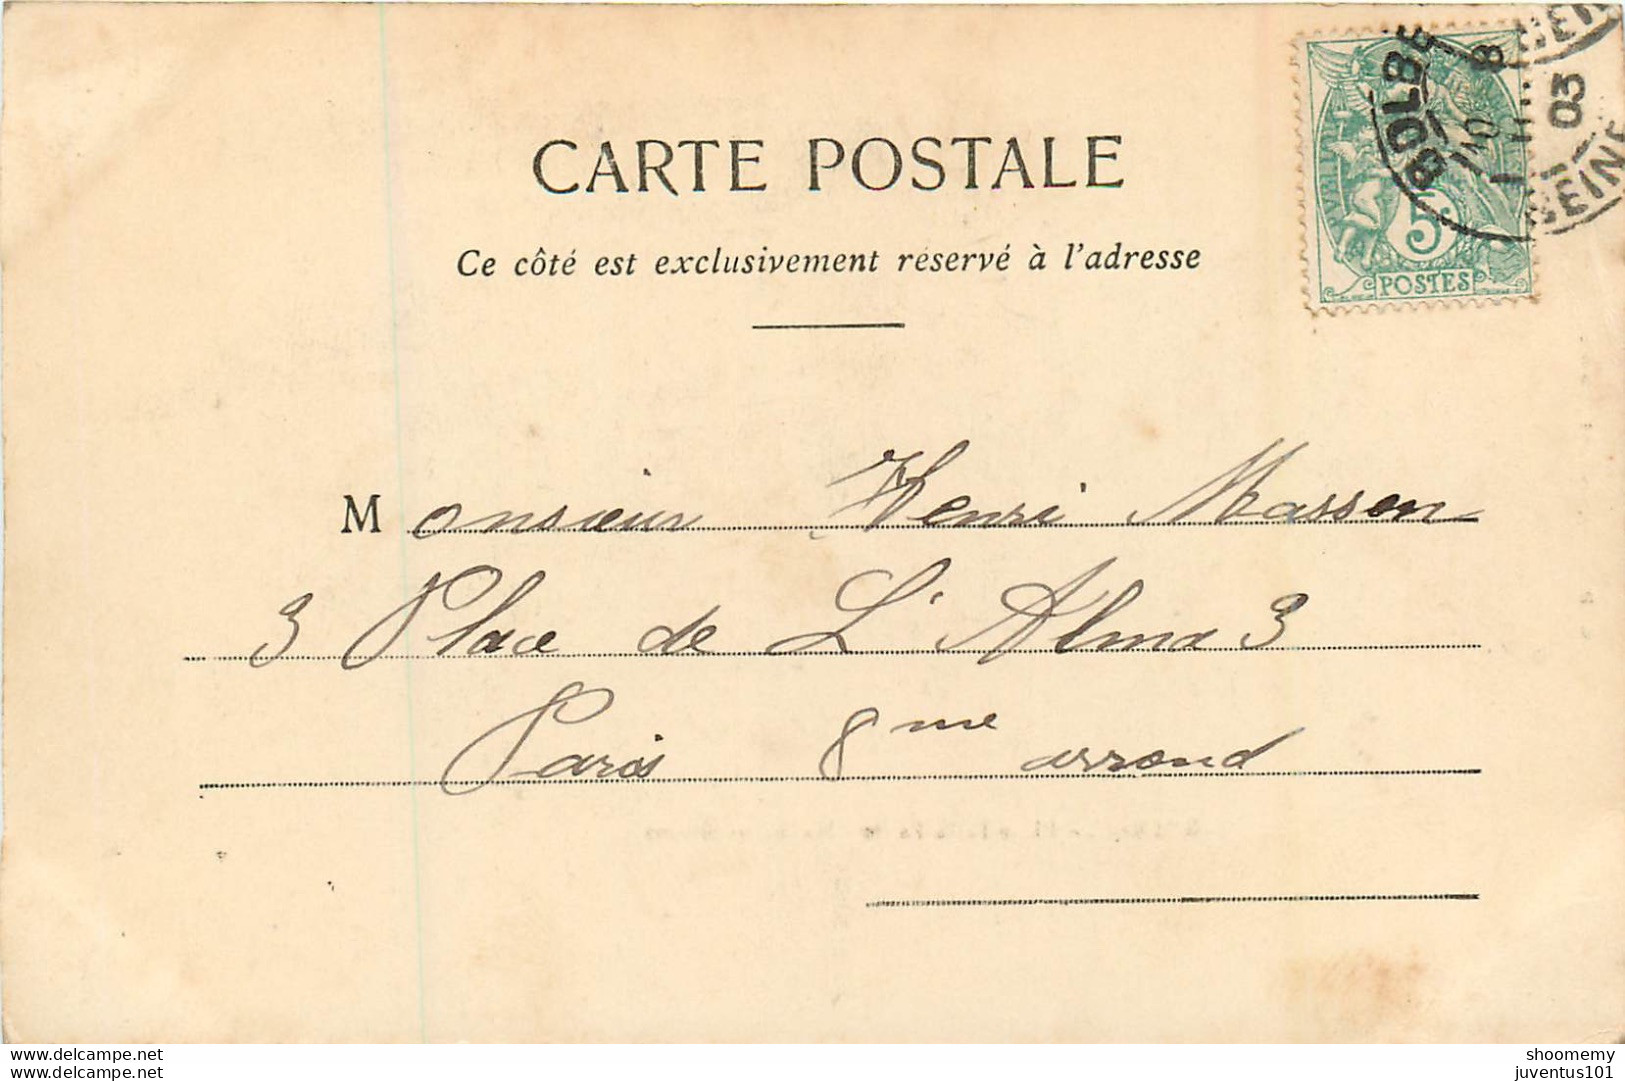 CARTE POSTALE
Ce côté est exclusivement réservé à l'adresse
BOLBEC
8
03
SEINE
5c
POSTES
Monsieur Henri Masson
3 Place de L'Alma 3
Paris 8me arrond
www.delcampe.net
www.delcampe.net
shoomemy
juventus101